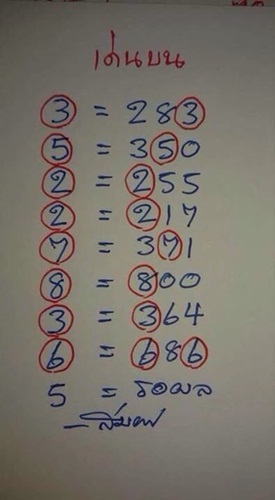 เด่นบน
3 = 283
5 = 350
2 = 255
2 = 217
7 = 371
8 = 800
3 = 364
6 = 686
5 = รอผล